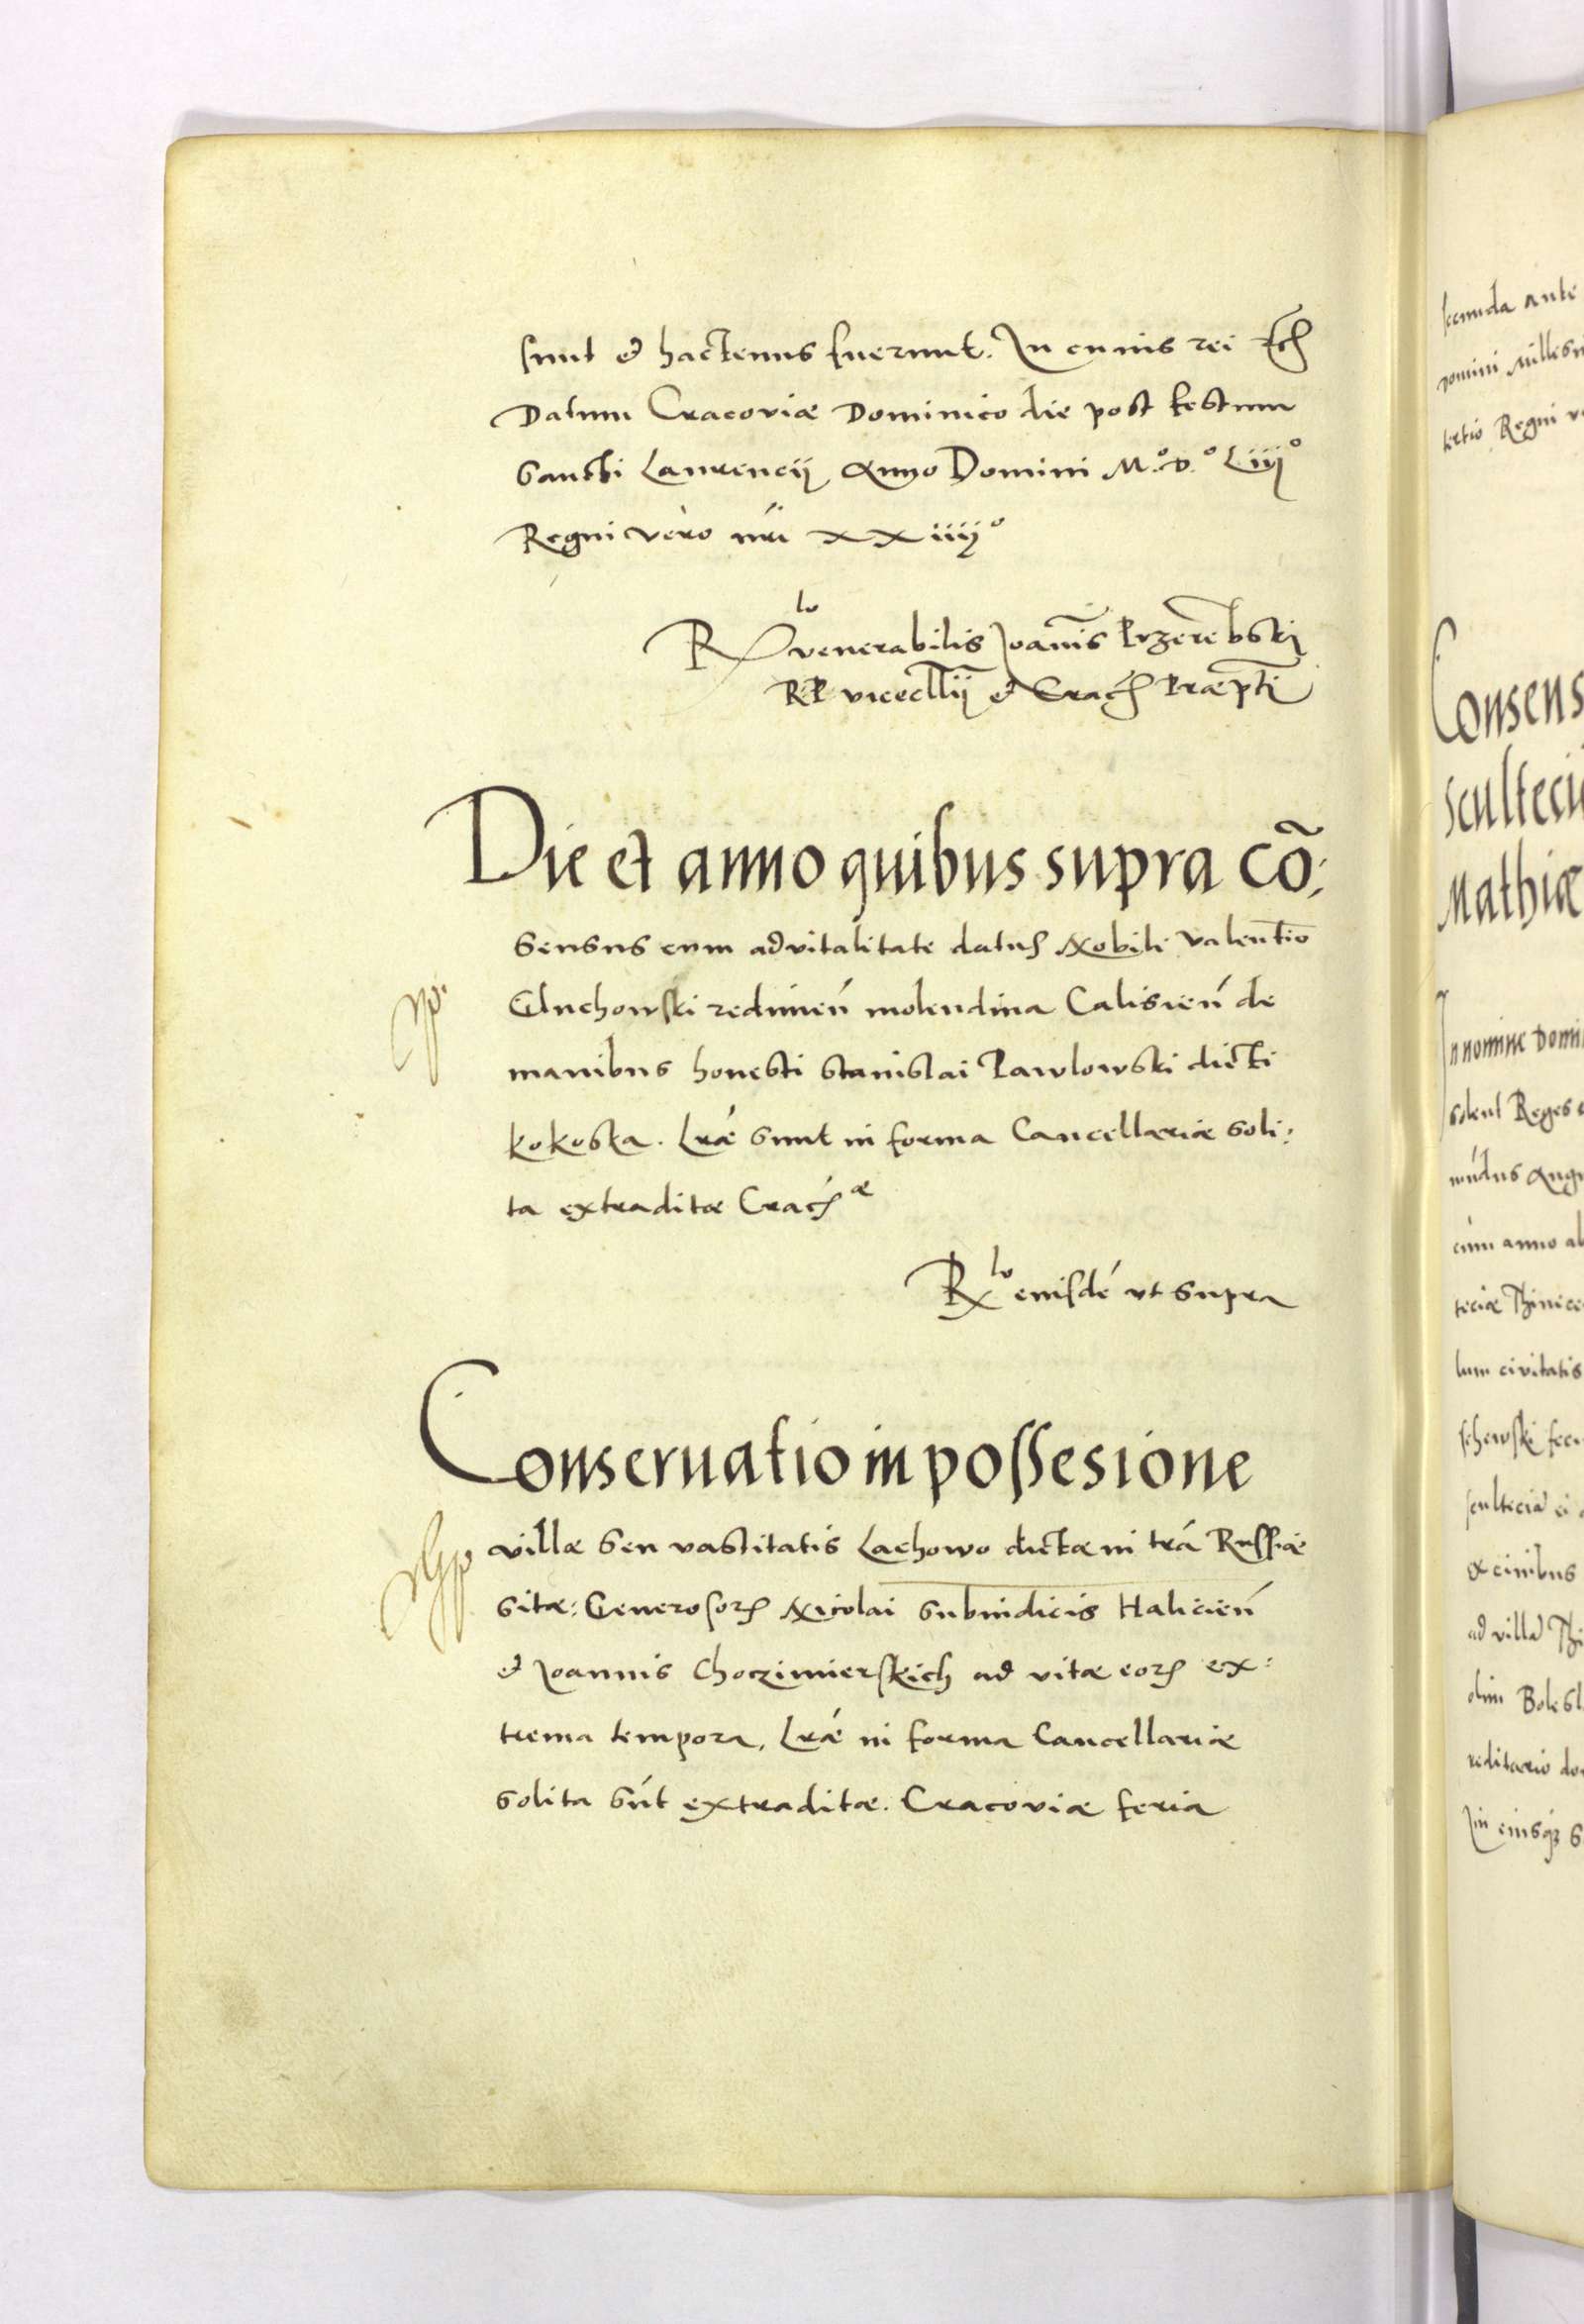 sunt et hactenus fuerunt. In cuius rei etc
Datum Cracoviæ Dominico die post festum
Sancti Laurencij Anno Domini M.º D.º Liijº
Regni vero nrí XXiiijº
Rlo venerabilis Joanīs Przerembski
RP vicecllij et Crać Præpti
Die et anno quibus supra cō:
sensus cum advitalitate datus Nobili Valentīo
Gluchowski redimeń molendina Calisień de
manibus honesti Stanislai Pawlowski dicti
kokoska. Lræ sunt in forma Cancellariæ soli:
ta extraditæ Craćæ
Rlo eiusdē ut supra
Conservatio in possesione
villæ seu vastitatis Lachowo dictæ in trá Russiæ
sitæ: Generosorum Nicolai subiudicis Halicień
et Joannis Choczimierskich ad vitæ eorum ex:
trema tempora, Lræ in forma Cancellariæ
solita sút extraditæ. Cracoviæ feria
secunda ante
Domini Millesi
tertio Regni v
Consens
sculteci
Mathiæ
In nomine Domi
solent Reges
mūdus Augu
cum anno ab
teciæ
lum civitatis
schewski feci
scultecia ei
ex civibus
ad villa
olim Bolesl
reditario do
eiusque s